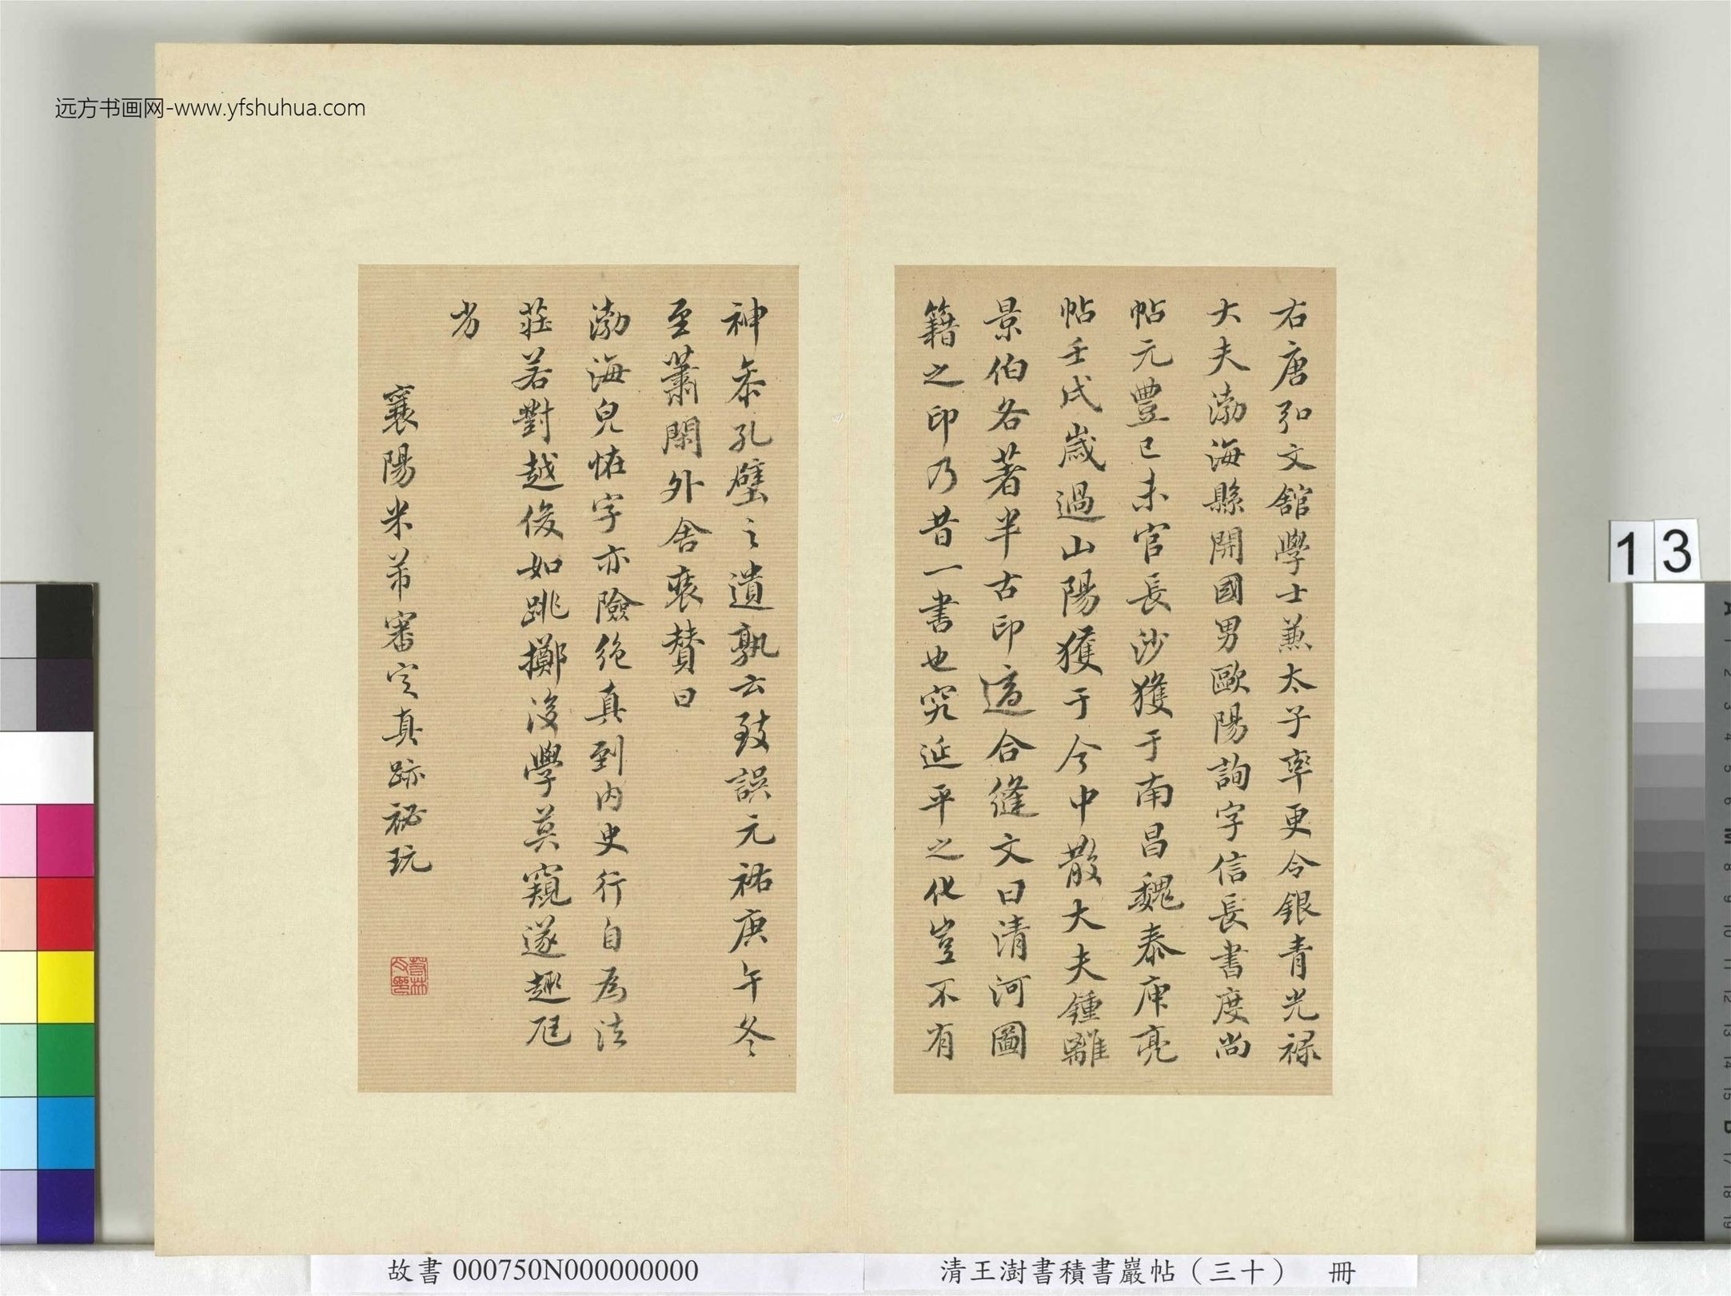 远方书画网-www.yfshuhua.com
右唐弘文館學士兼太子率更令銀青光祿
大夫渤海縣開國男歐陽詢字信長書度尚
帖元豐己未官長沙獲于南昌魏泰庾亮
帖壬戌歲過山陽獲于今中散大夫鍾離
景伯各著半古印適合縫文曰清河圖
籍之印乃昔一書也究延平之化豈不有
神忝孔壁之遺孰云致誤元祐庚午冬
至蕭閑外舍裝贊曰
渤海皃恠字亦險絶真到内史行自為法
莊若對越俊如跳擲後學莫窺遂趣尫
劣
襄陽米芾審定真跡祕玩
13
故書 000750N000000000
清王澍書積書巖帖（三十） 冊